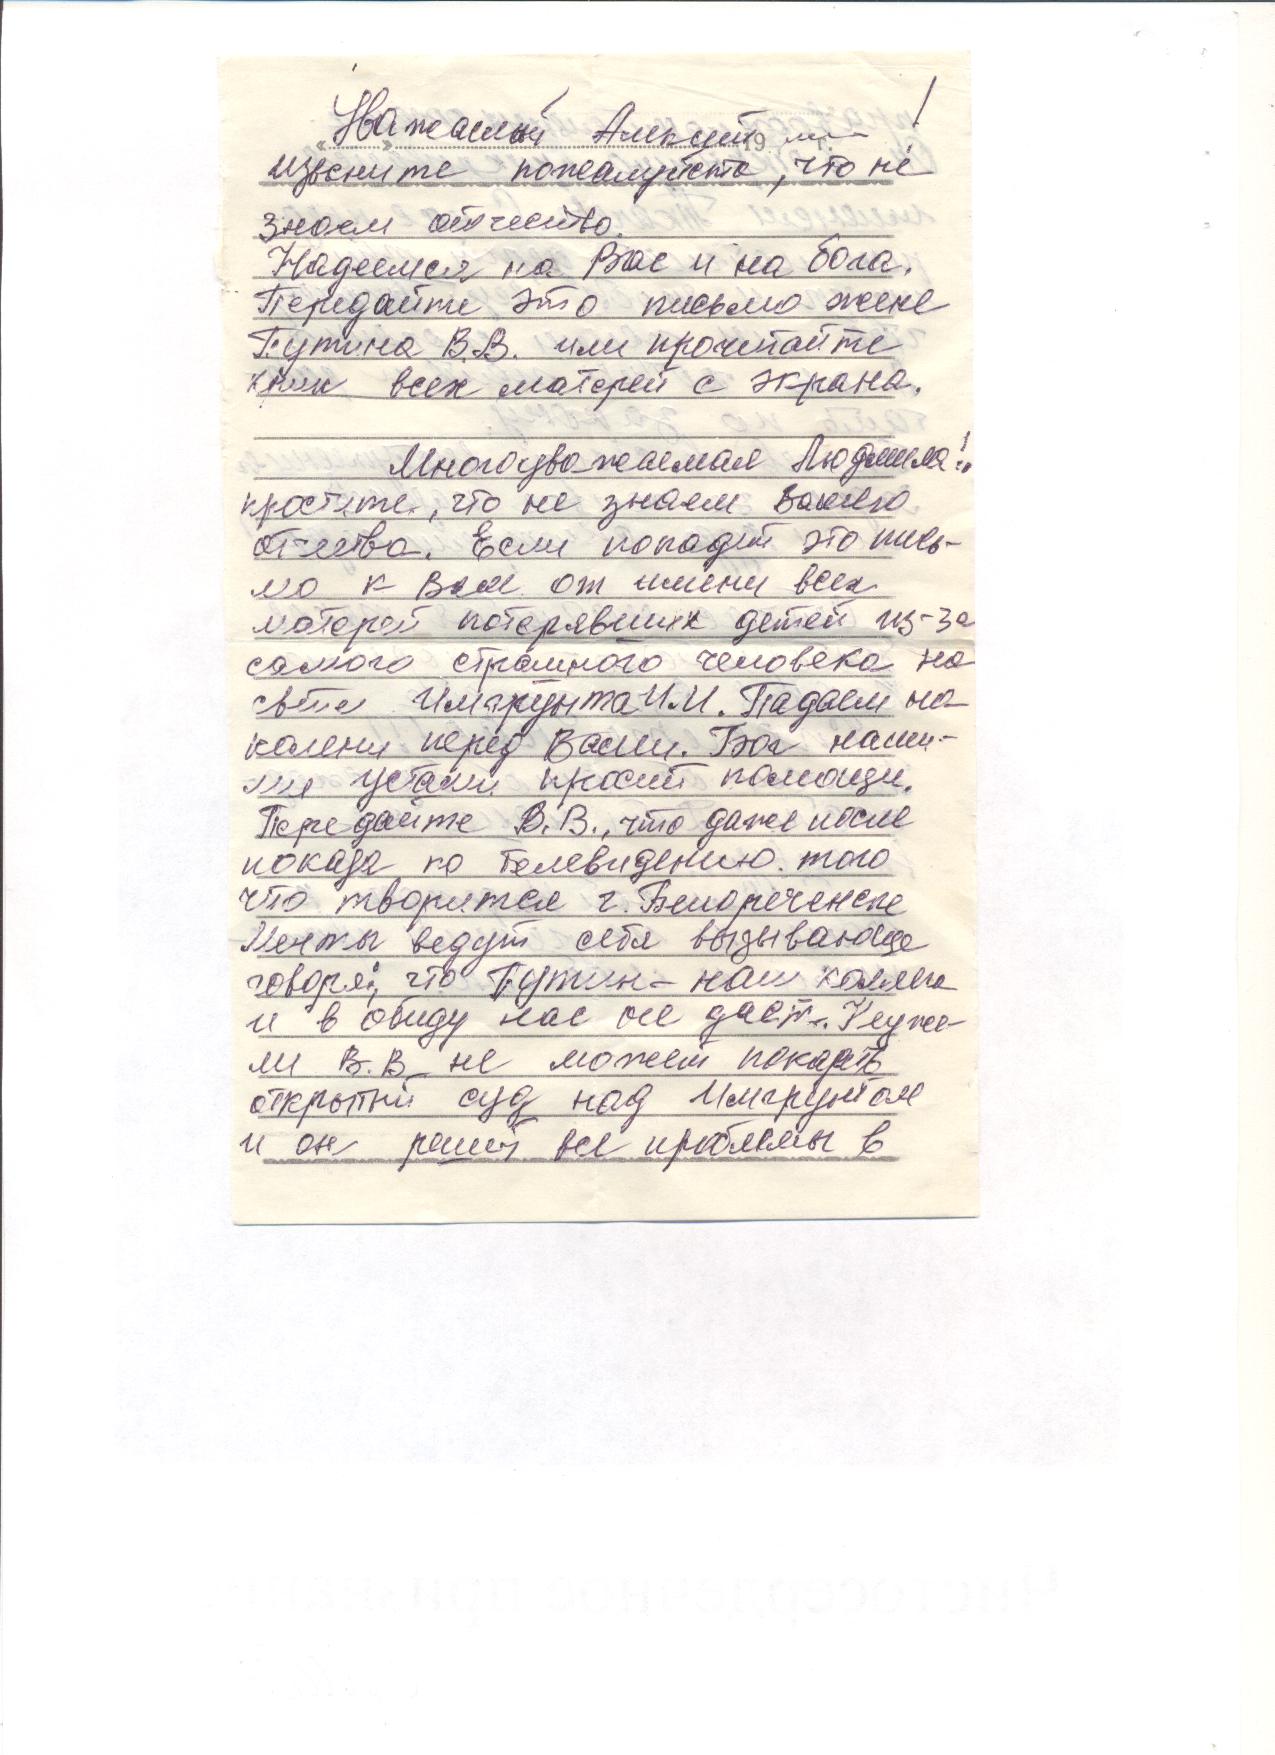 Уважаемый Алексей !
« » 19 г.
извените пожалуйсто, что не
знаем отчество.
Надеемся на Вас и на бога.
Передайте это письмо жене
Путина В.В. или прочитайте
крик всех матерей с экрана.
Многоуважаемая Людмила!
простите, что не знаем Вашего
отчества. Если попадёт это пись-
мо к Вам от имени всех
матерей потерявших детей из-за
самого страшного человека на
свете Имгрунта И.И. Падаем на
колени перед Вами. Бог наши-
ми устами просит помощи.
Передайте В.В., что даже после
показа по телевидению того
что творится г. Белореченске
Менты ведут себя вызывающе
говоря, что Путин - наш коллега
и в обиду нас не даст. Неуже-
ли В.В. не может показать
открытый суд над Имгрунтом
и он решит все проблемы в